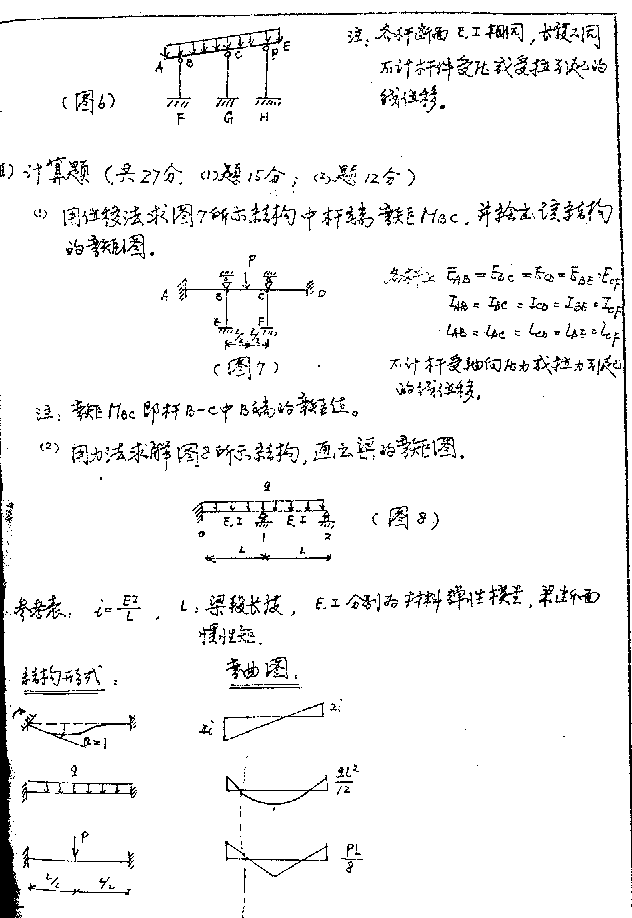 注：各杆断面E.I相同，长度不同
不计杆件受压或受拉引起的
线位移。
A B C D E
F G H
（图6）
计算题（共27分 (1)题15分；(2)题12分）
(1) 用位移法求图7所示结构中杆端弯矩MBC，并绘出该结构
的弯矩图。
P
A B C D
F
L/2 L/2
（图7）
EAB=EBC=ECD=EBE=ECF
IAB=IBC=ICD=IBE=ICF
LAB=LBC=LCD=LBE=LCF
不计杆受轴向压力或拉力引起
的线位移。
注：弯矩MBC即杆B-C中B端的弯矩值。
(2) 用力法求解图8所示结构，画出梁的弯矩图。
q
E.I E.I
0 1 2
L L
（图8）
参考表：i=EI/L，L：梁段长度，E.I分别为材料弹性模量，梁断面
惯性矩.
结构形式：
弯曲图：
θ=1
4i 2i
q
qL²/12
P
L/2 L/2
PL/8